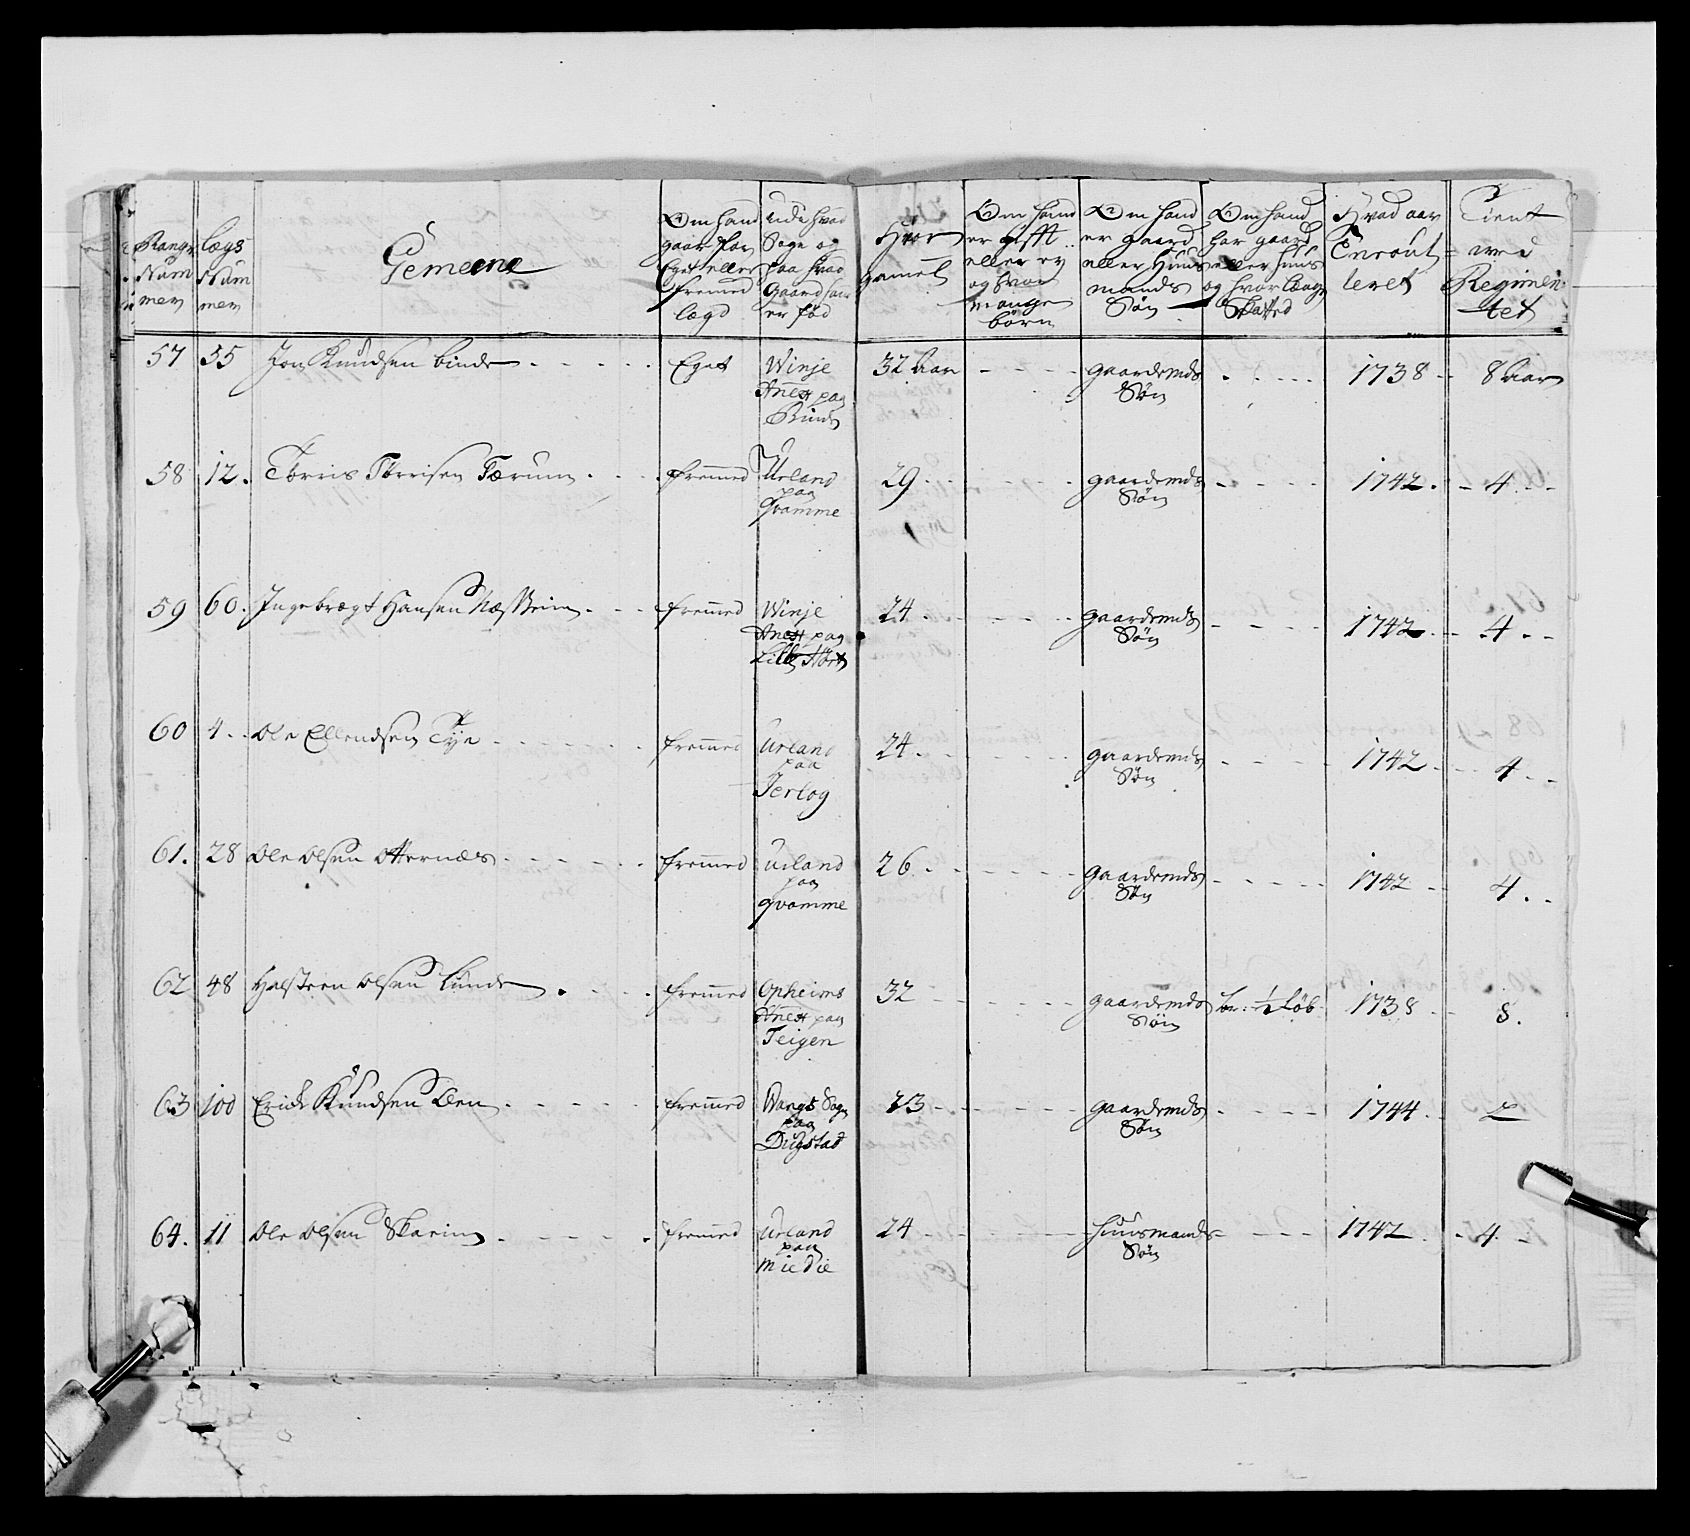 Rangs Nummer
lægs Nummer
Gemeene
Om hand gaar for Eget eller fremed lægd
udi hvad Sogn og paa hvad Gaard han er fød
Hvor gamel
Om hand er gifft eller ey og hvor mange børn
Om hand er gaard eller Huusmands Søn
Om hand har gaard eller huus og hvor Skatted
Hvad aar Enroulleret
Tient ved Regimentet
57 35 Jon Knudsen binde Eget Winje Anex paa Binde 32 aar gaardemds Søn 1738 8 aar
58 12. Torris Torrisen Færum fremed Urland paa Qvamme 29 gaardemds Søn 1742. 4
59 60. Ingebregt Hansen Næssheim fremed Winje Anex paa Lille 24 gaardemds Søn 1742 4
60 4 Ole Ellendsen Tye fremed Urland paa Jerlog 24 gaardemds Søn 1742 4
61. 28 Ole Olsen Otternæs fremed urland paa qvamme 26 gaardemds Søn 1742 4
62 48 Halsteen Olsen Lunde fremed Opheims Anex paa Teigen 32 gaardemds Søn 1/2 Løb 1738 8.
63 100 Erick Knudsen Øen fremed Wangs Sogn paa Dugstad 23 gaardemds Søn 1744 2
64. 11 Ole Olsen Skarim fremed Urland paa miedie 24 Huusmands Søn 1742 4